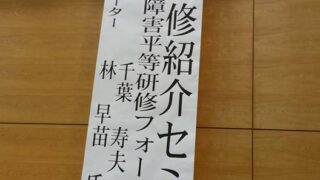 修紹介セン
障害平等研修フォー
ーター
千葉 寿夫
林 早苗 氏